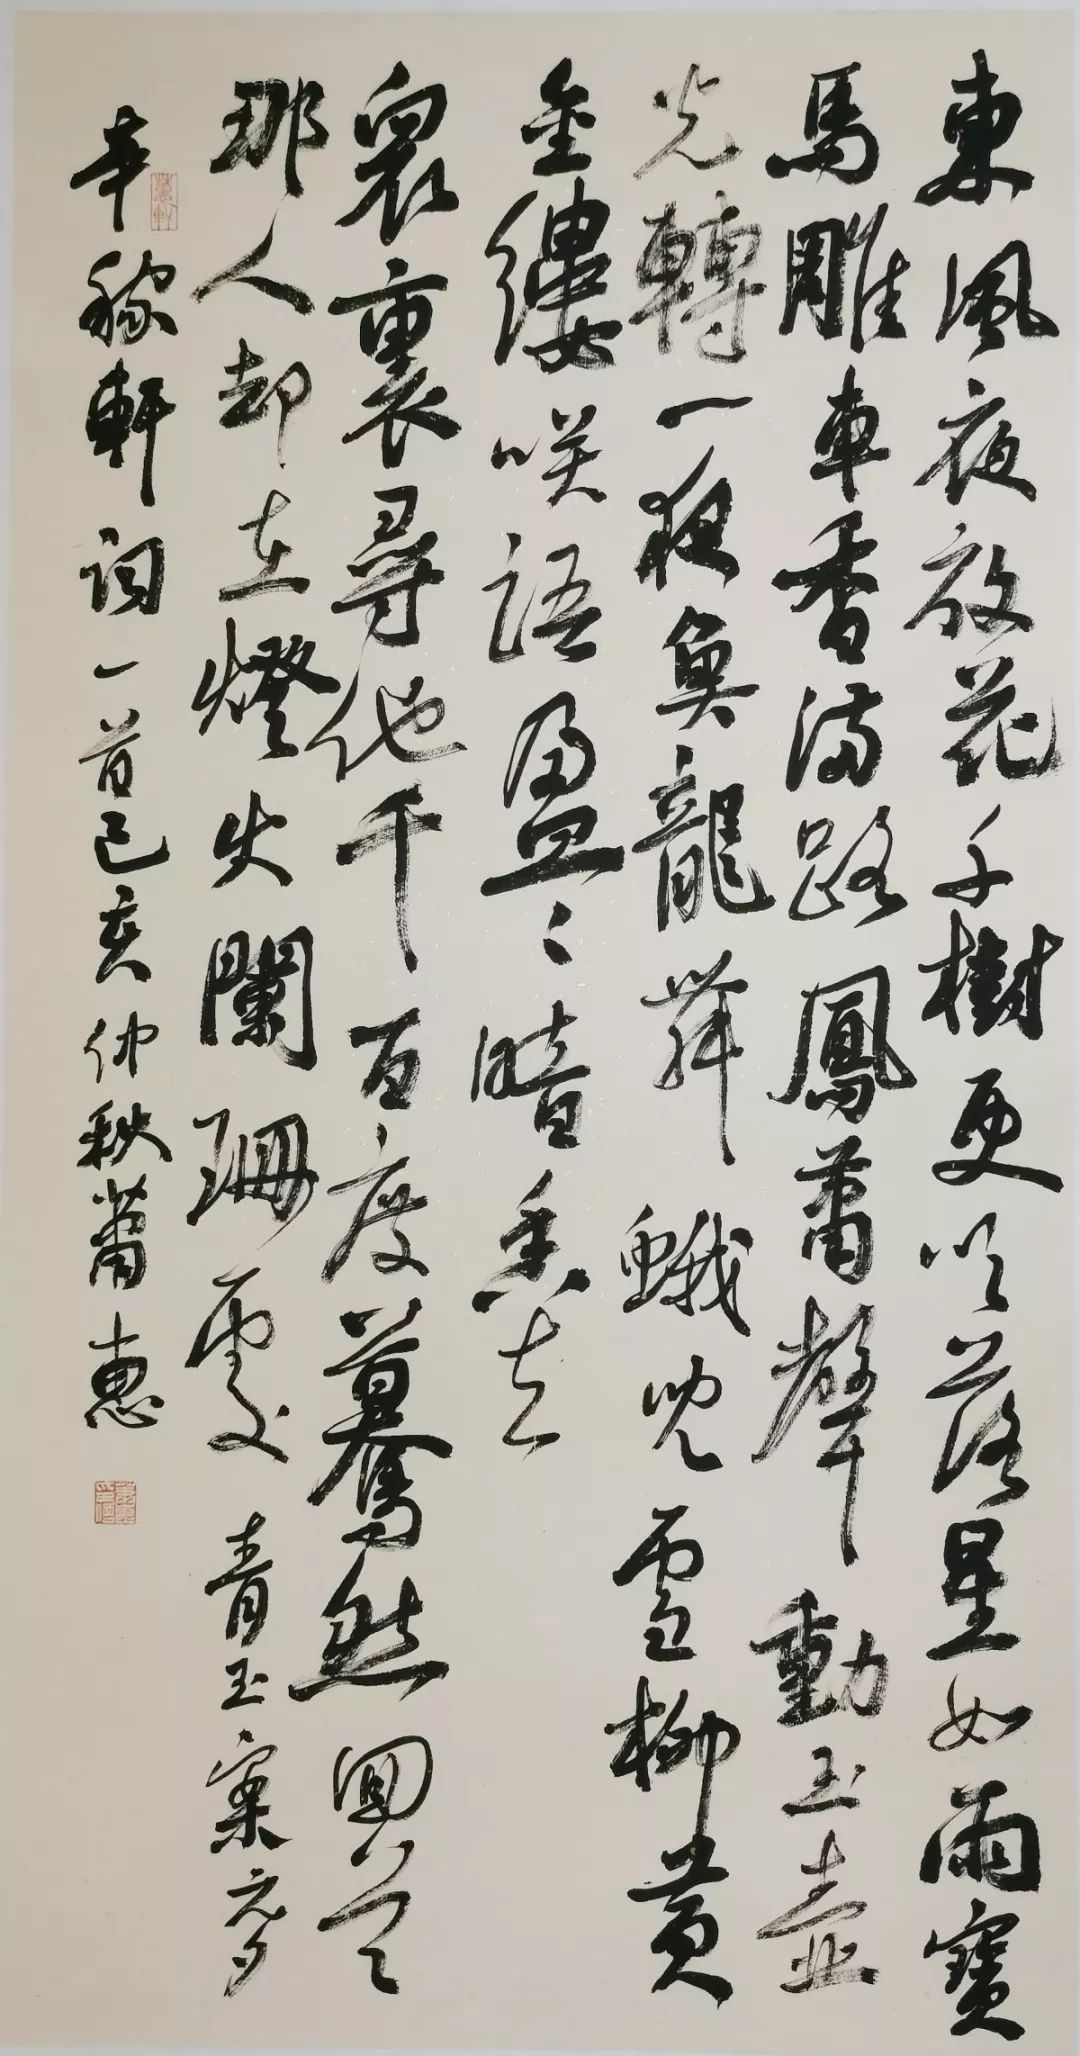 東風夜放花千樹更吹落星如雨寶
馬雕車香滿路鳳簫聲動玉壺
光轉一夜魚龍舞蛾兒雪柳黃
金縷咲語盈〻暗香去
衆裏尋他千百度驀然回首
那人却在燈火闌珊處青玉案元夕
辛稼軒詞一首己亥仲秋蕭惠